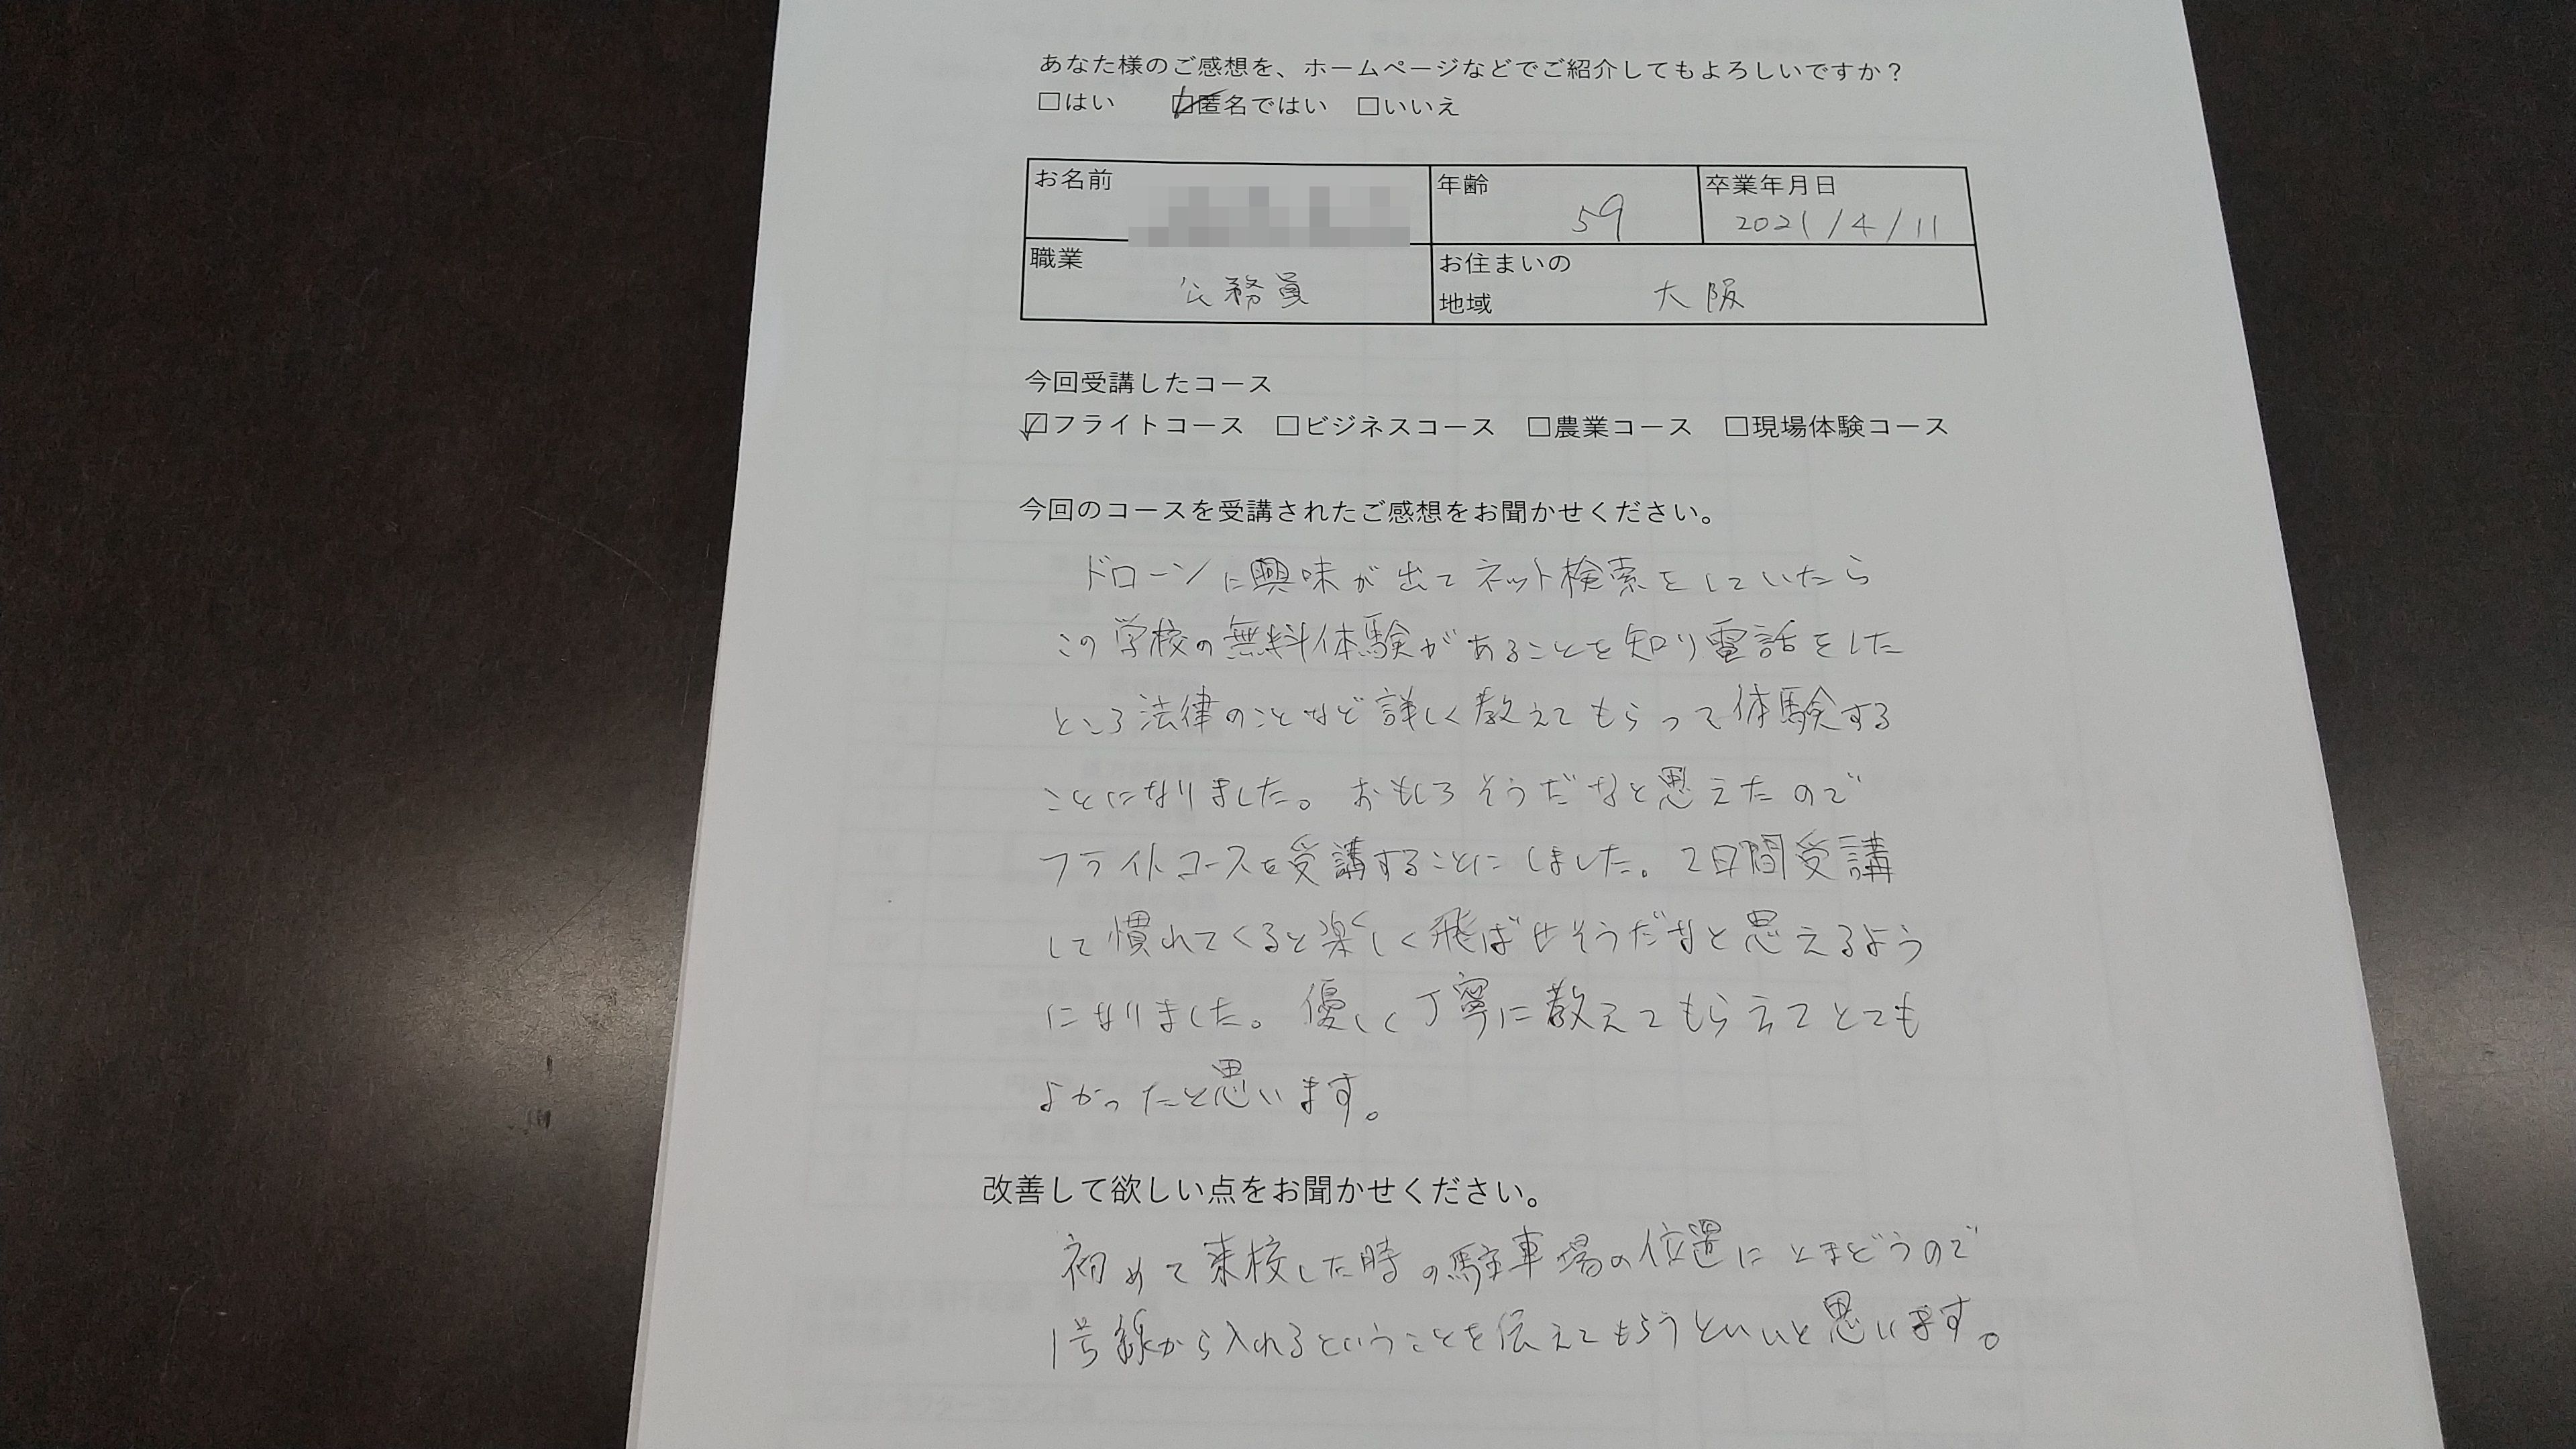 あなた様のご感想を、ホームページなどでご紹介してもよろしいですか？
□はい ☑匿名ではい □いいえ
お名前
年齢 59
卒業年月日 2021/4/11
職業 公務員
お住まいの地域 大阪
今回受講したコース
☑フライトコース □ビジネスコース □農業コース □現場体験コース
今回のコースを受講されたご感想をお聞かせください。
ドローンに興味が出てネット検索をしていたら
この学校の無料体験があることを知り電話をした
ところ法律のことなど詳しく教えてもらって体験する
ことになりました。おもしろそうだなと思えたので
フライトコースを受講することにしました。2日間受講
して慣れてくると楽しく飛ばせそうだなと思えるよう
になりました。優しく丁寧に教えてもらえてとても
よかったと思います。
改善して欲しい点をお聞かせください。
初めて来校した時の駐車場の位置にとまどうので
1号線から入れるということを伝えてもらうといいと思います。